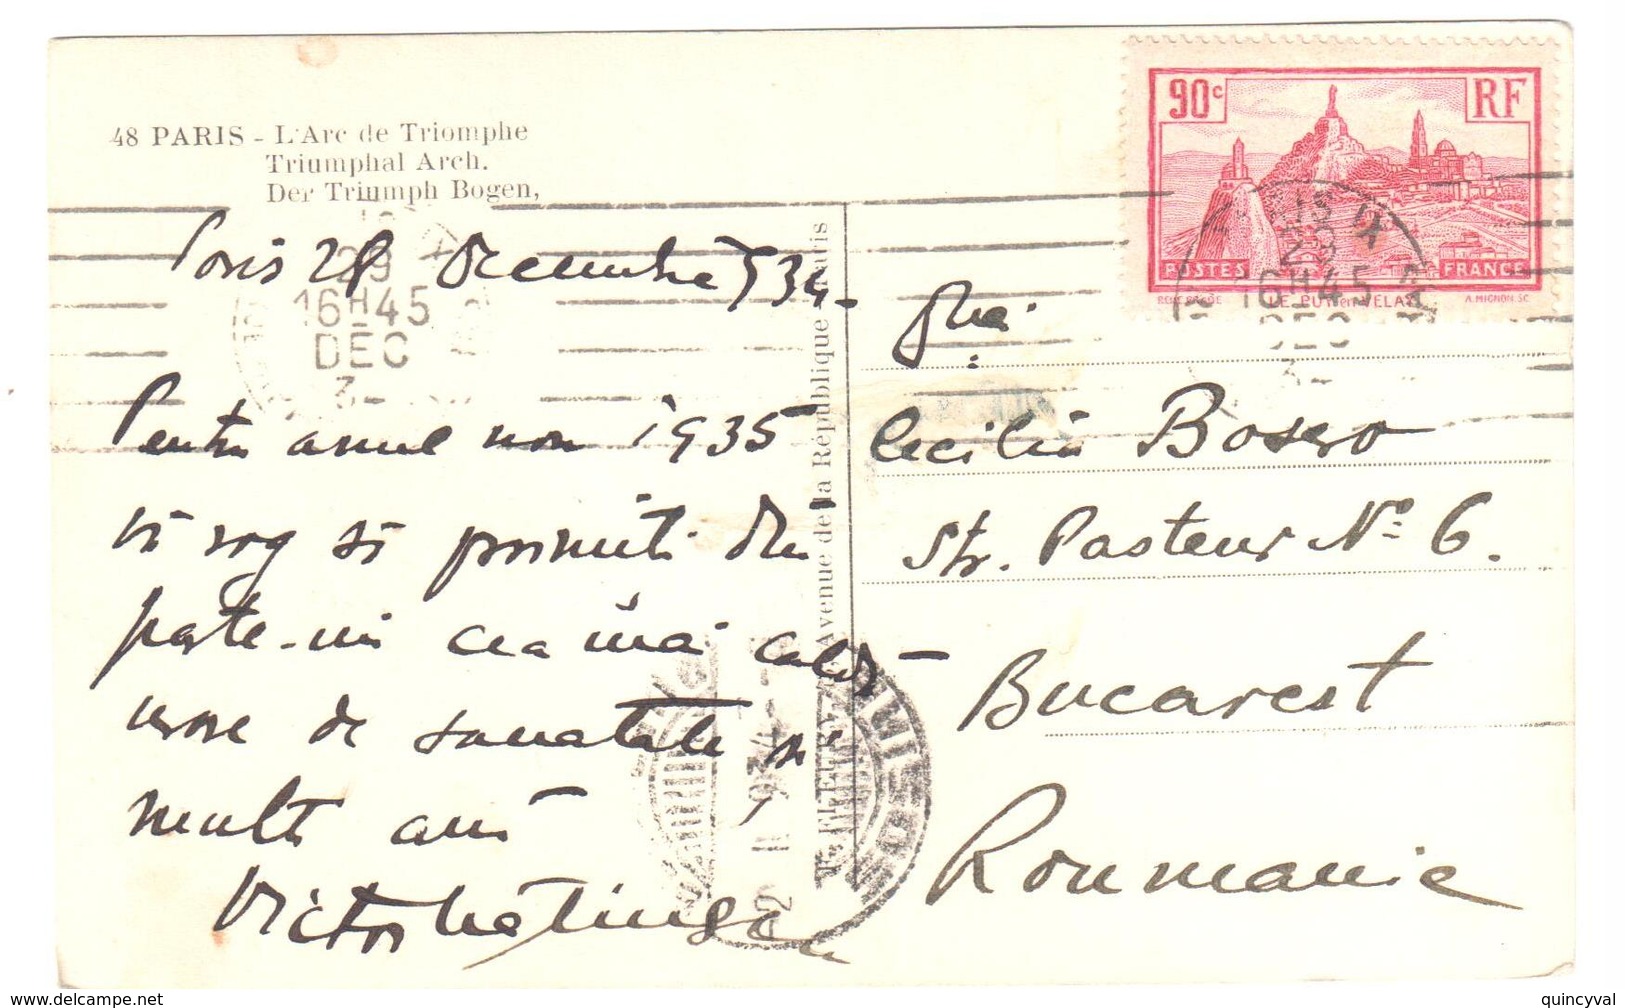 48 PARIS - L'Arc de Triomphe
Triumphal Arch.
Der Triumph Bogen,
90c RF
POSTES FRANCE
LE PUY en VELAY
A. MIGNON SC
16H45
29
16H45
DÉC
Paris 28 Decembre 934-
Pentru anul nou 1935
vă rog să primiti din
parte-mi cea mai caldă
urare de sanatate si
multi ani
Victor
Avenue de la République Paris
Dnei
Cecilia Bosero
Str. Pasteur No. 6.
Bucarest
Roumanie
delcampe.net
quincyval